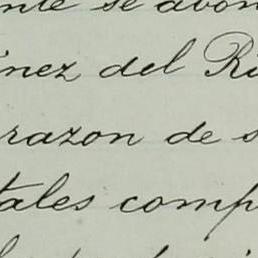 nte se abon
inez del Ri
razon de s
tales comp